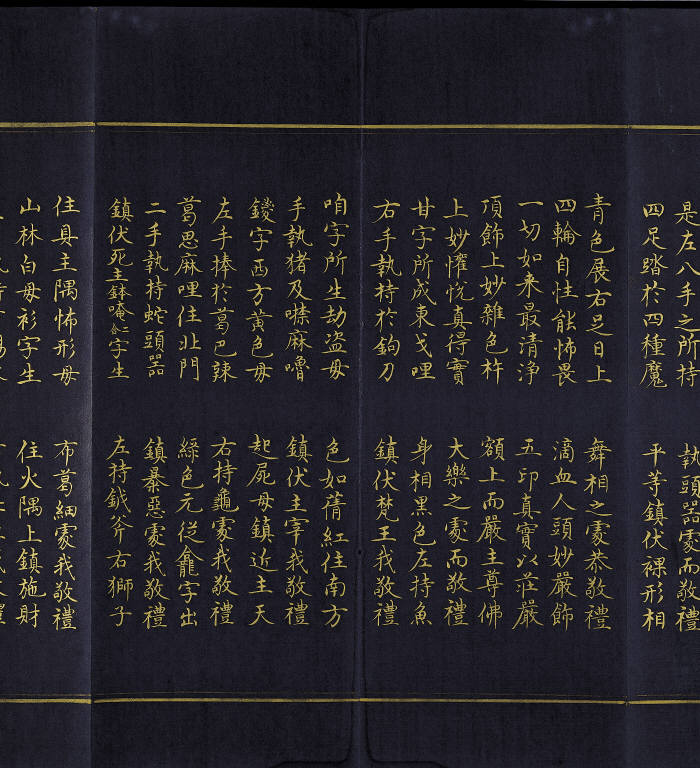 是左八手之所持　執頭器處而敬禮
四足踏於四種魔　平等鎮伏裸形相
青色展右足日上　舞相之處恭敬禮
四輪自性能怖畏　滴血人頭妙嚴飾
一切如来最清淨　五印真寶以莊嚴
項飾上妙雜色杵　額上而嚴主尊佛
上妙懽悅真得實　大樂之處而敬禮
甘字所成東戈哩　身相黑色左持魚
右手執持於鉤刀　鎮伏梵王我敬禮
咱字所生劫盗母　色如蒨紅住南方
手執猪及噤麻嚕　鎮伏主宰我敬禮
鑁字西方黄色母　起屍母鎮近主天
左手捧於葛巴辣　右持龜處我敬禮
葛思麻哩住北門　綠色元從龕字出
二手執持蛇頭器　鎮暴惡處我敬禮
鎮伏死主鉢唵二合字生　左持鉞斧右獅子
住具主隅怖形母　布葛細處我敬禮
山林白母衫字生　住火隅上鎮施財